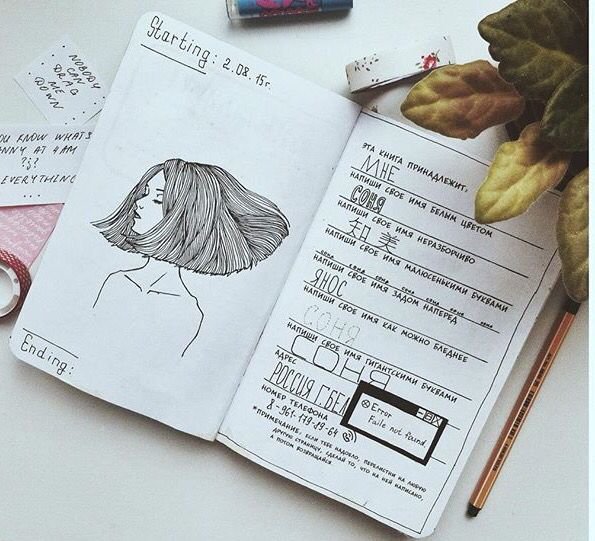 Starting: 2.08.15г.
NOBODY
CAN
DRAG
ME
DOWN
OU KNOW WHATS
NNY AT 4 AM
???
EVERYTHING
...
Ending:
ЭТА КНИГА ПРИНАДЛЕЖИТ:
МНЕ
НАПИШИ СВОЕ ИМЯ БЕЛИМ ЦВЕТОМ
СОНЯ
НАПИШИ СВОЕ ИМЯ НЕРАЗБОРЧИВО
知 美
НАПИШИ СВОЕ ИМЯ МАЛЮСЕНЬКИМИ БУКВАМИ
НАПИШИ СВОЕ ИМЯ ЗАДОМ НАПЕРЕД
ЯНОС
НАПИШИ СВОЕ ИМЯ КАК МОЖНО БЛЕДНЕЕ
СОНЯ
НАПИШИ СВОЕ ИМЯ ГИГАНТСКИМИ БУКВАМИ
СОНЯ
АДРЕС
РОССИЯ Г.БЕЛ
НОМЕР ТЕЛЕФОНА
8-961-179-19-64
Error
Faile not found
*ПРИМЕЧАНИЕ: ЕСЛИ ТЕБЕ НАДОЕЛО, ПЕРЕЛИСТНИ НА ЛЮБУЮ
ДРУГУЮ СТРАНИЦУ, СДЕЛАЙ ТО, ЧТО НА НЕЙ НАПИСАНО,
А ПОТОМ ВОЗВРАЩАЙСЯ